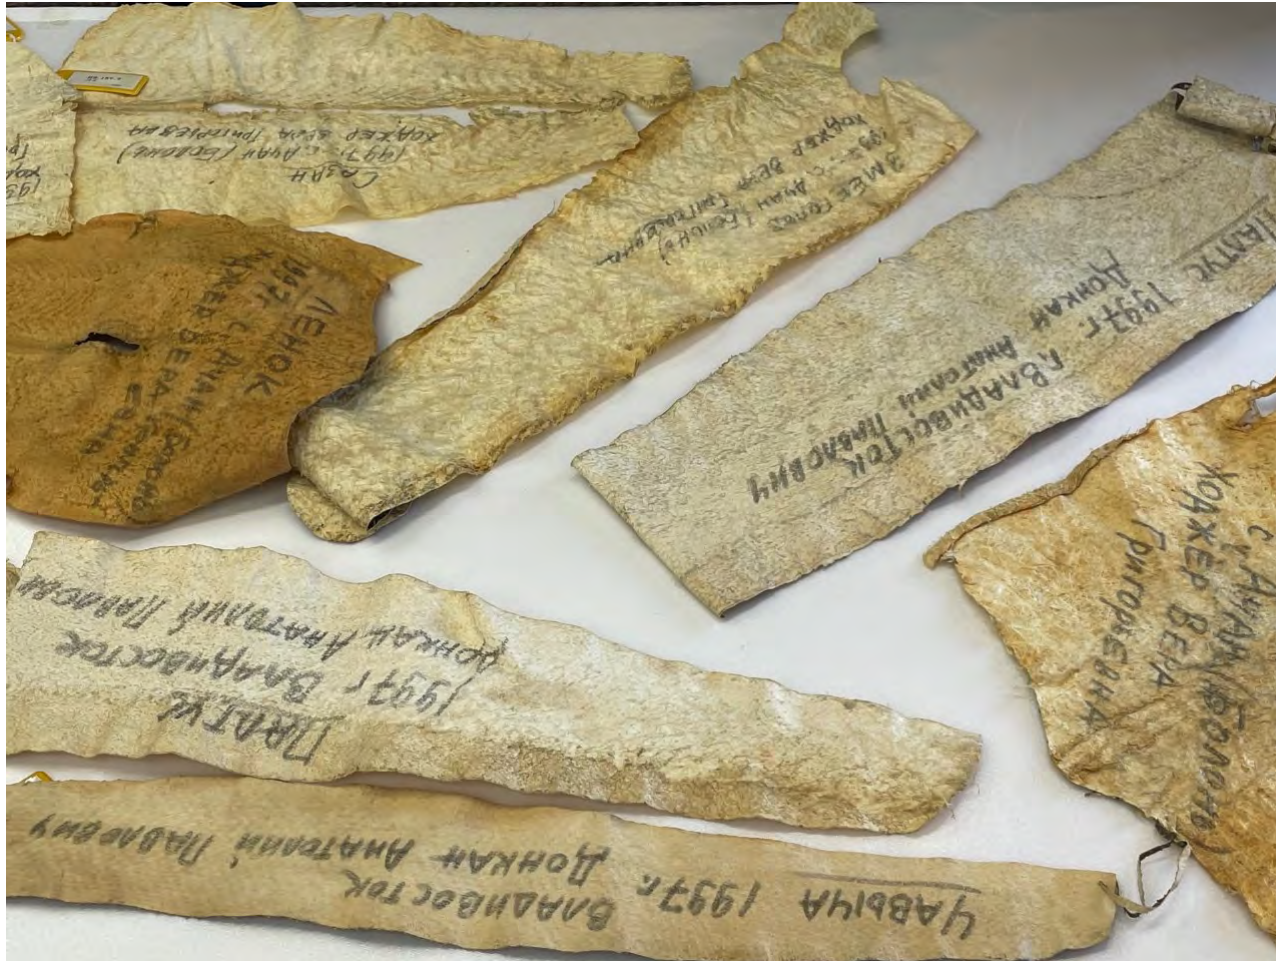 Сазан
1997г. с. Ачан (Болонь)
Ходжер Вера Григорьевна
Змееголов
с. Ачан
Ходжер Вера Григорьевна
Ленок
1997г. с. Ачан
Ходжер Вера
Палтус
1997г г. Владивосток
Донкан Анатолий Павлович
с. Ачан
Ходжер Вера
Григорьевна
Палтус
1997 г Владивосток
Донкан Анатолий
Чавыча 1997г.
Владивосток
Донкан Анатолий Павлович